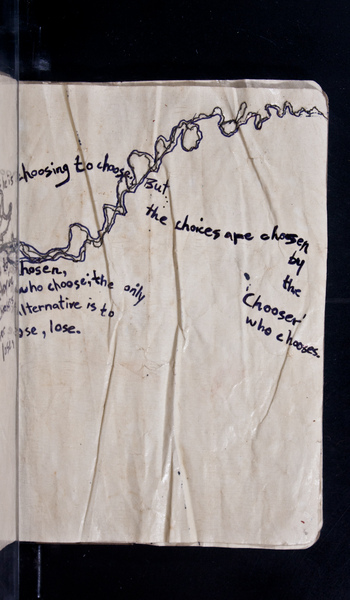 choosing to choose. But
the choices are chosen
by
the
'Chooser'
who chooses.
hosen,
who choose; the only
lternative is to
ose, lose.